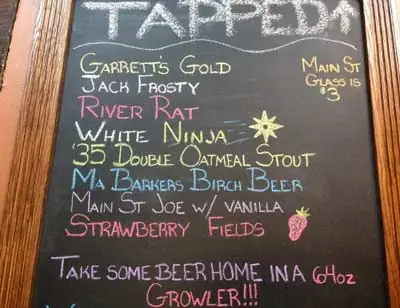 TAPPED
GARRETT'S GOLD
MAIN ST
JACK FROSTY
GLASS IS
$3
RIVER RAT
WHITE NINJA
'35 DOUBLE OATMEAL STOUT
MA BARKERS BIRCH BEER
MAIN ST JOE W/ VANILLA
STRAWBERRY FIELDS
TAKE SOME BEER HOME IN A 64oz
GROWLER!!!